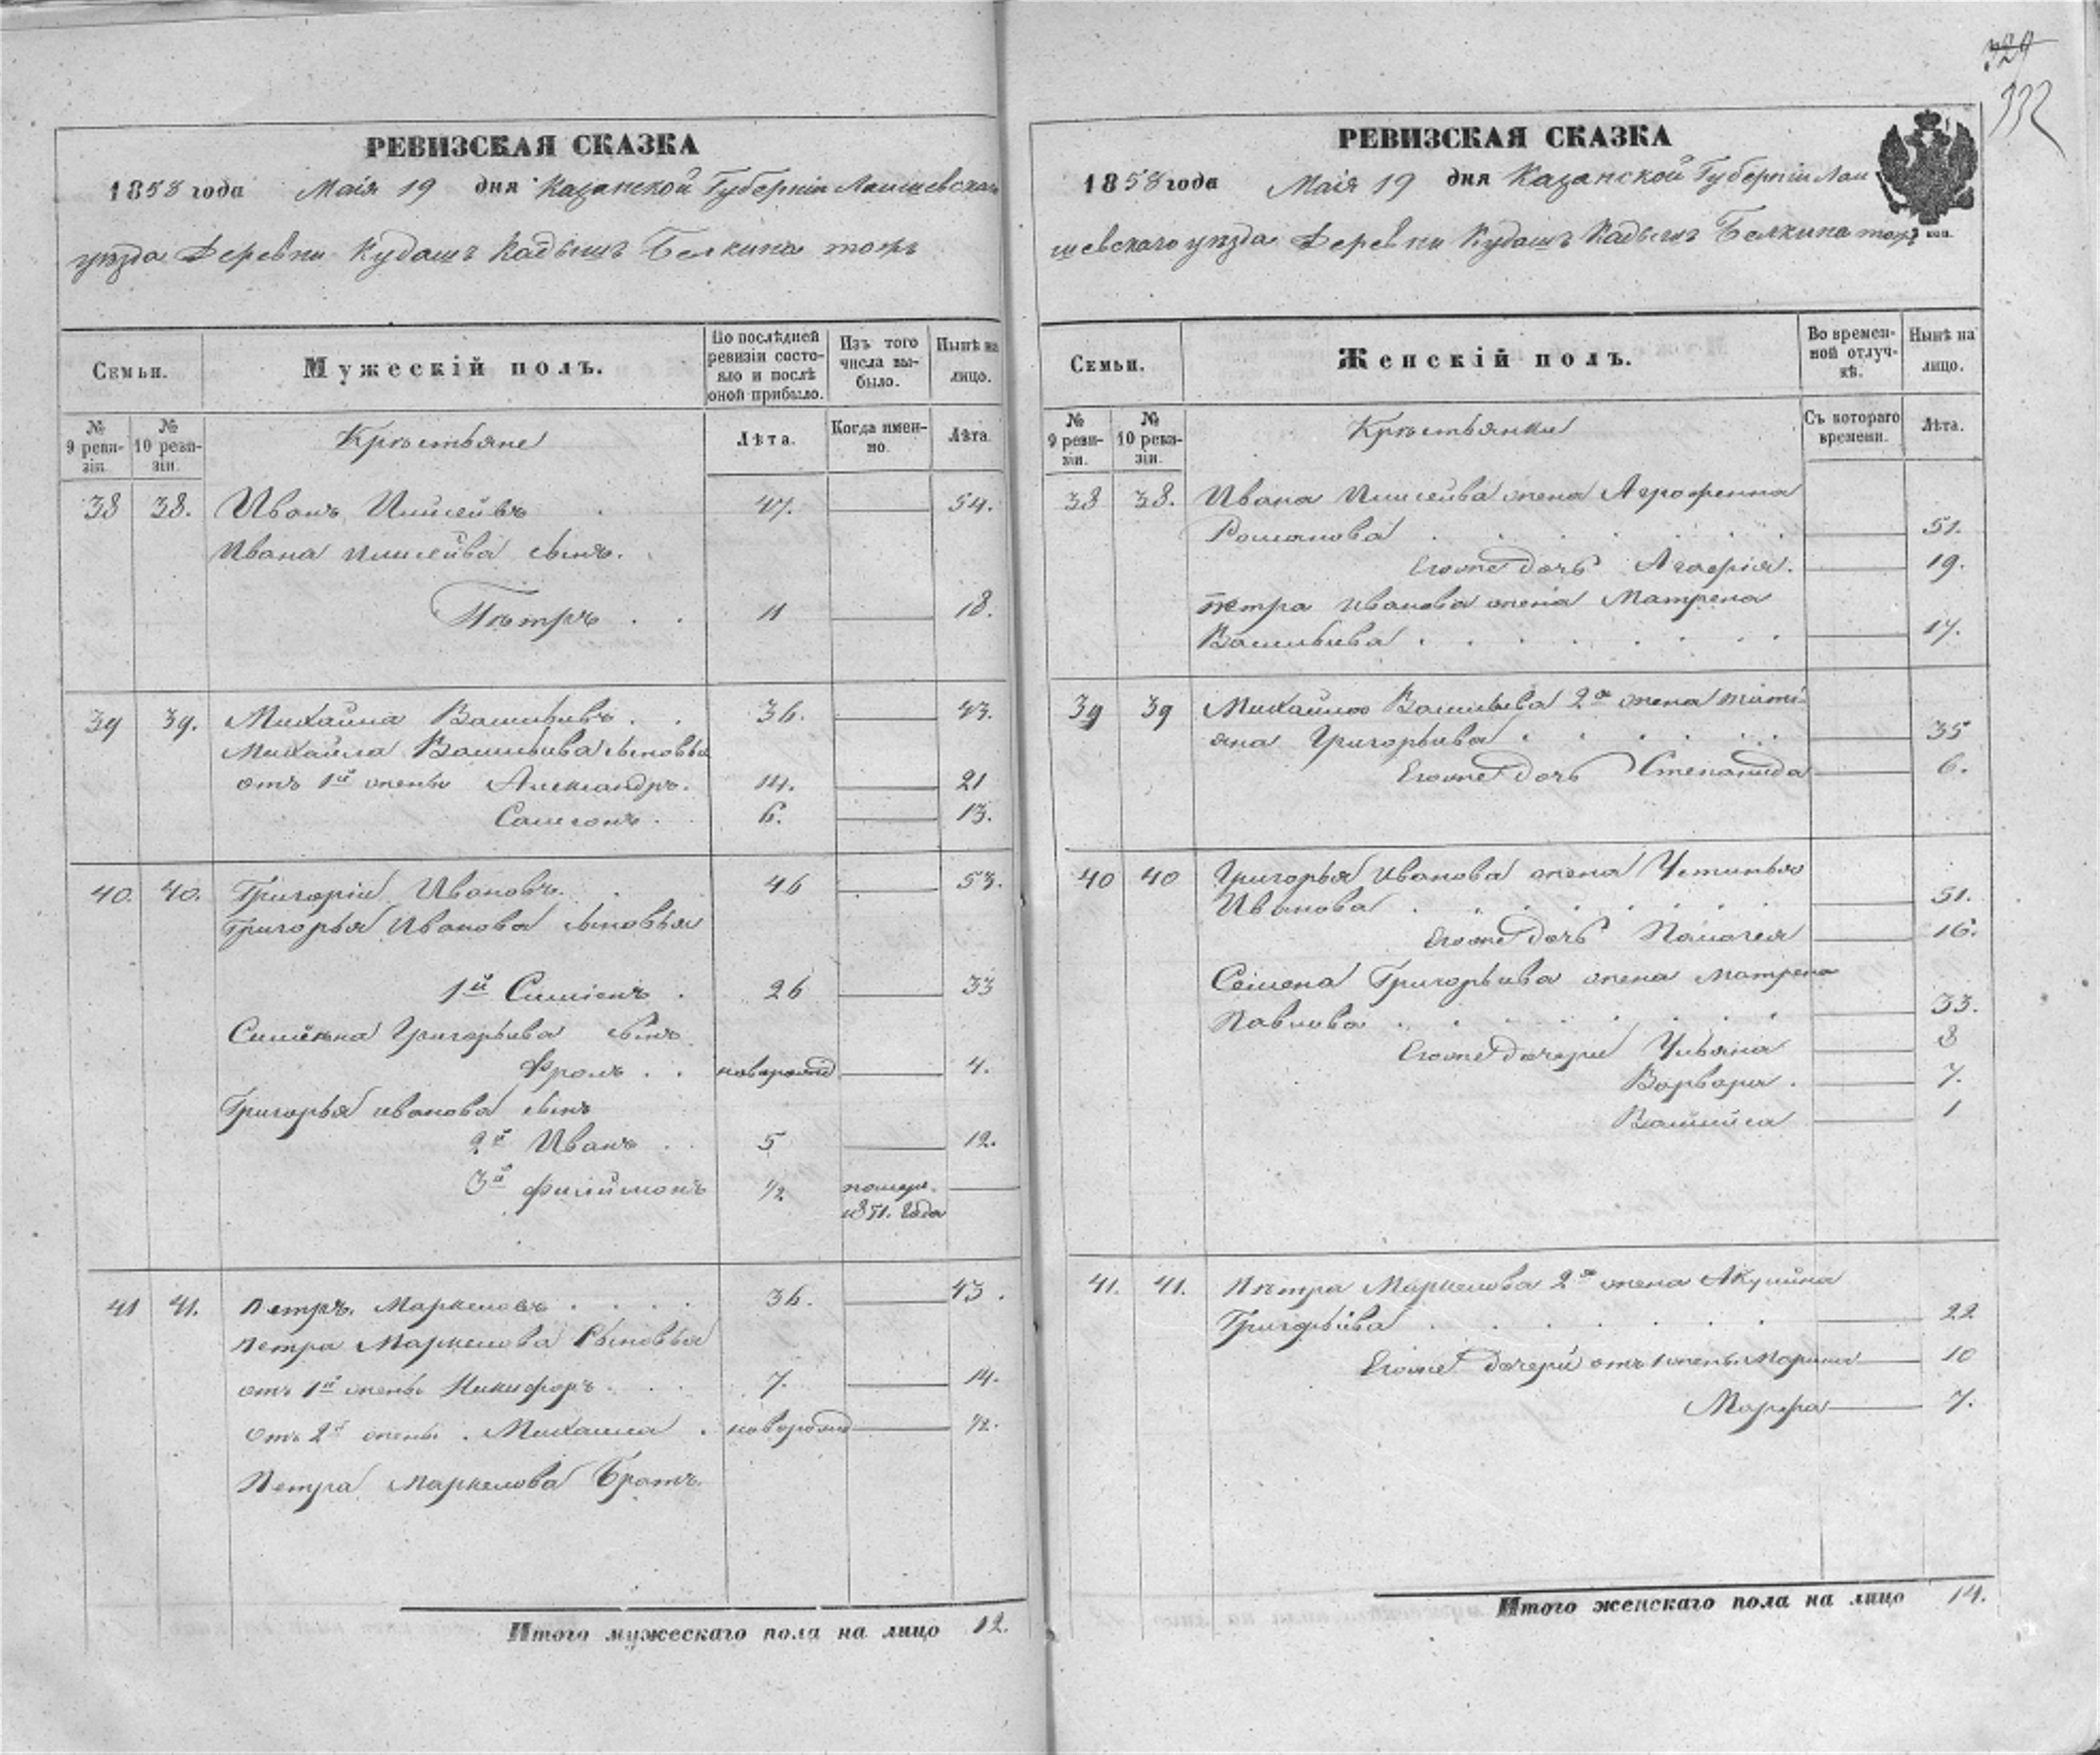 РЕВИЗСКАЯ СКАЗКА
1858 года Маія 19 дня Казанской Губерніи Лаишевскаго
уѣзда Деревни Кудашъ Кадышъ Белкина тожъ
Семьи.
Мужескій полъ.
По послѣдней ревизіи состояло и послѣ оной прибыло.
Изъ того числа выбыло.
Нынѣ на лицо.
№ 9 ревизіи.
№ 10 ревизіи.
Крестьяне
Лѣта.
Когда именно.
Лѣта.
38 38. Иванъ 47. 54.
Ивана сынъ.
Петръ 11 18.
39 39. Михайла Васильевъ 36. 43.
Михайла Васильева сыновья
отъ 1й жены Александръ. 14. 21
Самсонъ. 6. 13.
40. 40. Григорій Ивановъ. 46 53.
Григорья Иванова сыновья
1й Симіонъ 26 33
Григорьева сынъ
Фролъ новорожд 4.
Григорья иванова сынъ
2й Иванъ 5 12.
3й Филимонъ 1/2 помер.
1851. года
41 41. Петръ Маркеловъ 36. 43.
Петра Маркелова Сыновья
отъ 1й жены Никифоръ. 7. 14.
отъ 2й жены. Михаила новорожд 1/2.
Петра Маркелова Братъ.
Итого мужескаго пола на лицо 12.
332
РЕВИЗСКАЯ СКАЗКА
1858 года Маія 19 дня Казанской Губерніи Лаи
шевскаго уѣзда Деревни Кудашъ Кадышъ Белкина тожъ
Семьи.
Женскій полъ.
Во временной отлучкѣ.
Нынѣ на лицо.
№ 9 ревизіи.
№ 10 ревизіи.
Крестьянки
Съ котораго времени.
Лѣта.
38 38. Ивана жена Агрофенна
Романова 51.
Егоже дочь 19.
Петра Иванова жена Матрена
Васильева 17.
39 39 Михайла Васильева 2я жена Тать
яна Григорьева 35
Егоже дочь Степанида 6.
40 40 Григорья Иванова жена Устинья
Иванова 51.
Егоже дочь Палагея 16.
Семена Григорьева жена Матрена
Павлова 33.
Егоже дочери Ульяна 8
Варвара. 7.
Васииса 1
41. 41. Петра Маркелова 2я жена Акулина
Григорьева 22
Егоже дочери отъ 1 жены Марина 10
Марфа 7.
Итого женскаго пола на лицо 14.